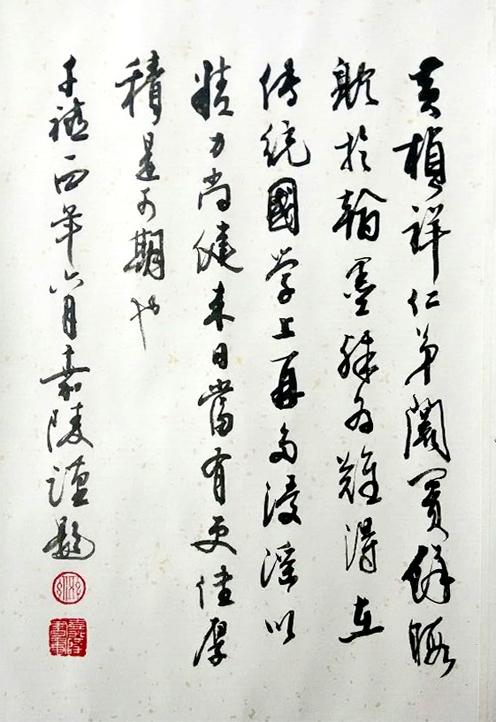 楨祥仁弟餘暇
於翰墨殊为難得在
傳統國学上再多浸淫以
精力尚健来日當有更佳厚
積是可期也
千禧四年六月嘉陵謹題